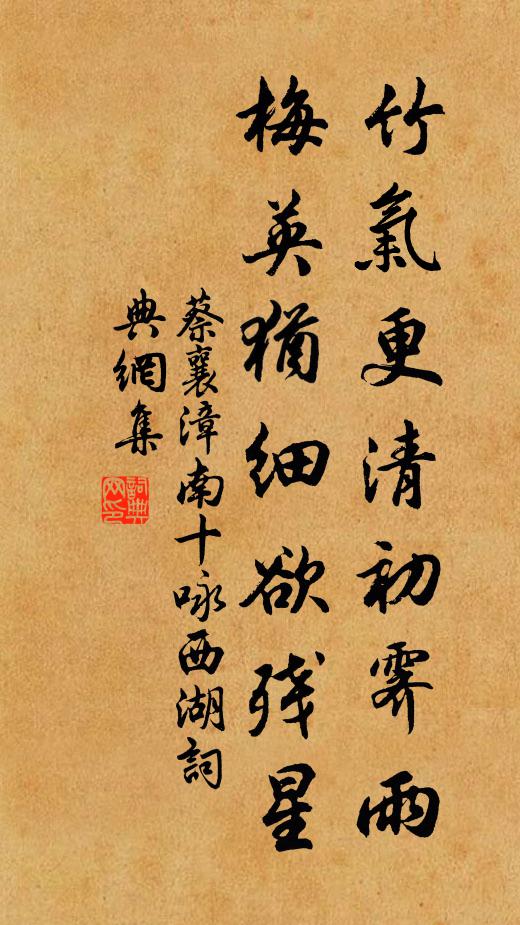 竹氣更清初霽雨
梅英猶細欲殘星
蔡襄漳南十咏西湖詞
典網集
詞典網印